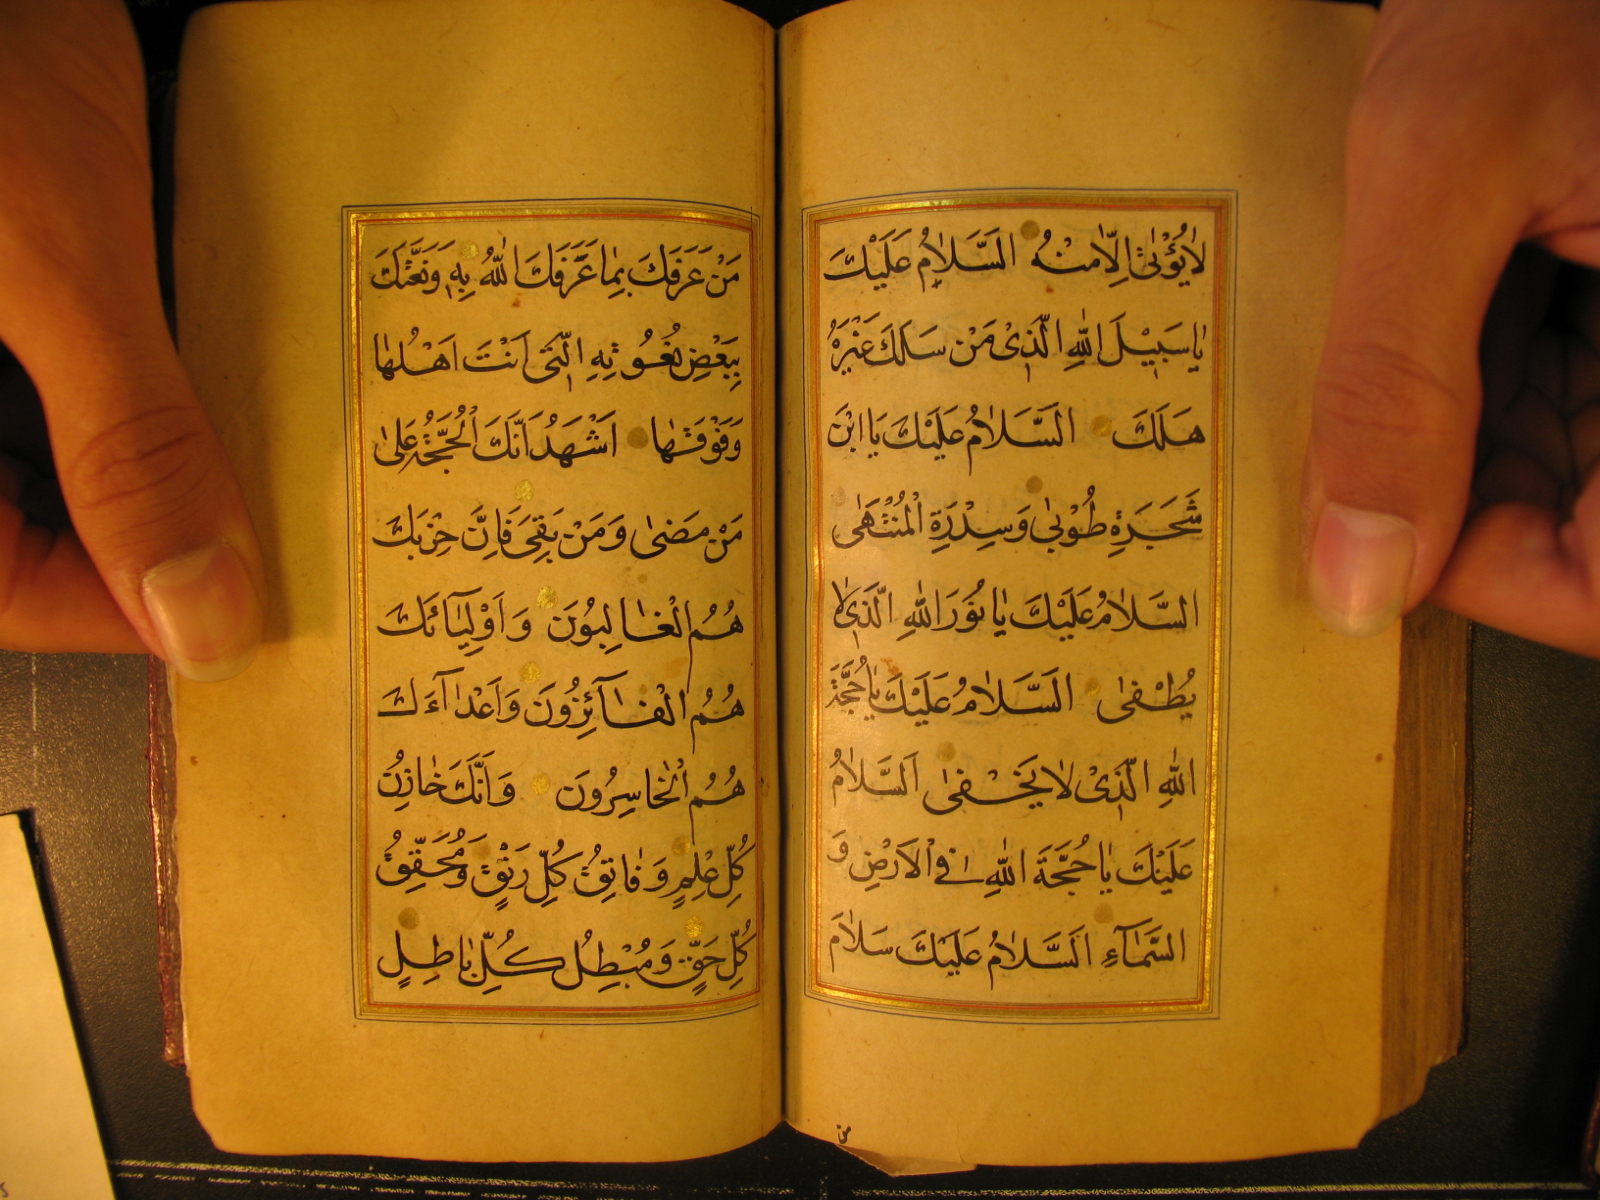 لَا يُؤْتىٰ اِلّاٰ مِنْهُ اَلسَّلامُ عَلَيْكَ
يٰا سَبيْلَ اللهِ الَّذِىْ مَنْ سَلَكَ غَيْرَهُ
هَلَكَ اَلسَّلاٰمُ عَلَيْكَ يَا ابْنَ
شَجَرَةِ طُوْبىٰ وَسِدْرَةِ الْمُنْتَهىٰ
السَّلاٰمُ عَلَيْكَ يٰا نُوْرَ اللهِ الَّذِىْ لاٰ
يُطْفىٰ اَلسَّلاٰمُ عَلَيْكَ يٰا حُجَّةَ
اللهِ الَّذِىْ لاٰ يَخْفىٰ اَلسَّلاٰمُ
عَلَيْكَ يٰا حُجَّةَ اللهِ فِى الْاَرْضِ وَ
السَّمٰآءِ اَلسَّلاٰمُ عَلَيْكَ سَلاٰمَ
من
مَنْ عَرَفَكَ بِمٰا عَرَّفَكَ اللهُ بِهِ وَنَعَتَكَ
بِبَعْضِ نُعُوْتِهِ الَّتِى اَنْتَ اَهْلُهٰا
وَفَوْقَهٰا اَشْهَدُ اَنَّكَ الْحُجَّةُ عَلىٰ
مَنْ مَضىٰ وَمَنْ بَقِىَ فَاِنَّ حِزْبَكَ
هُمُ الْغٰالِبُوْنَ وَ اَوْلِيٰائَكَ
هُمُ الْفٰآئِزُوْنَ وَ اَعْدٰآءَكَ
هُمُ اْلخٰاسِرُونَ وَ اَنَّكَ خٰازِنُ
كُلِّ عِلْمٍ وَ فٰاتِقُ كُلِّ رَتْقٍ وَ مُحَقِّقُ
كُلِّ حَقٍّ وَ مُبْطِلُ كُلِّ بٰاطِلٍ